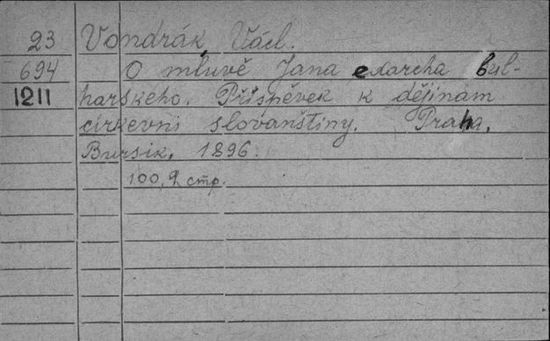 23 Vondrák, Václ.
694 O mluvě Jana exarcha bul-
1211 harského. Příspěvek k dějinám
církevní slovanštiny. Praha,
Bursík, 1896.
100, 2 стр.